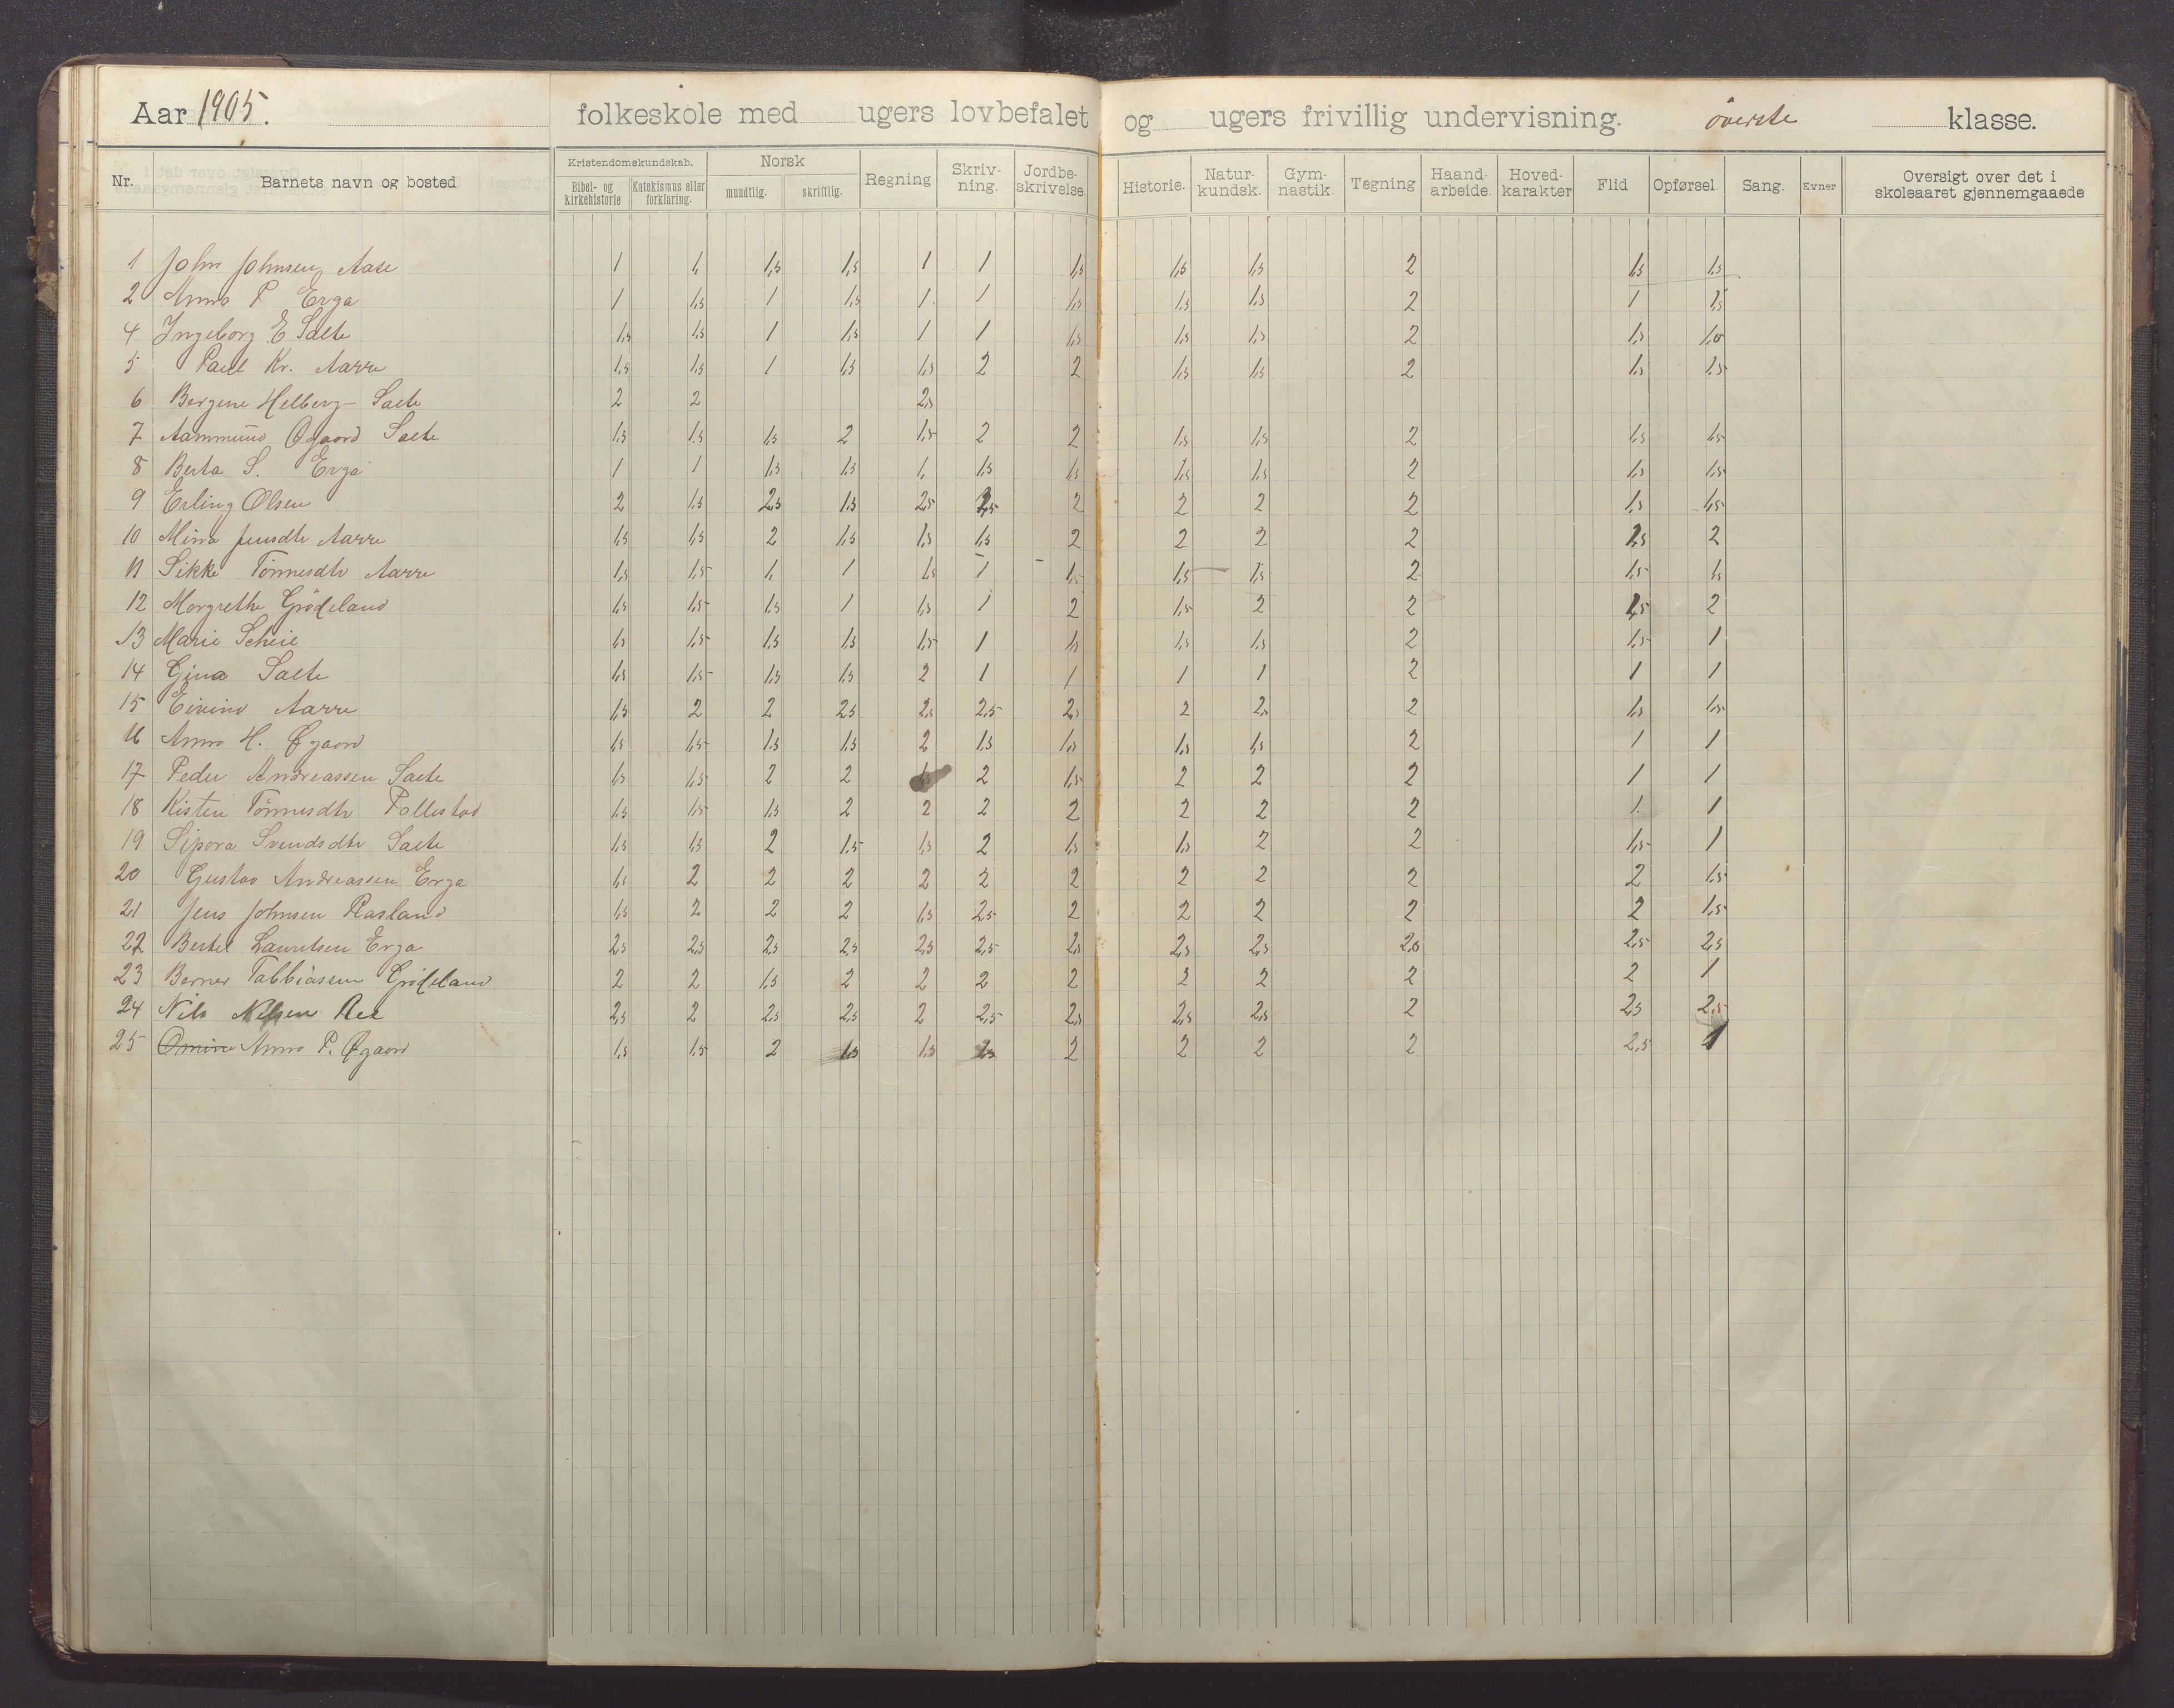 Aar 1905. folkeskole med ugers lovbefalet og ugers frivillig undervisning. överste klasse.
Nr. Barnets navn og bosted Kristendomskundskab. Bibel- og Kirkehistorie Katekismus eller forklaring. Norsk mundtlig. skriftlig. Regning Skriv-ning. Jordbe-skrivelse Historie. Natur-kundsk. Gym-nastik. Tegning Haand-arbeide. Hoved-karakter Flid Opførsel. Sang. Evner Oversigt over det i skoleaaret gjennemgaaede
1 John Johnsen Aase 1 1, 1,5 1,5 1 1 1,5 1,5 1,5 2 1,5 1,5
2 Anna P Erga 1 1,5 1 1,5 1. 1 1,5 1,5 1,5 2 1 1,5
4 Ingeborg E Salte 1,5 1,5 1 1,5 1 1 1,5 1,5 1,5 2 1,5 1,5
5 Paul Kr. Aarre 1,5 1,5 1 1,5 1,5 2 2 1,5 1,5 2 1,5 1,5
6 Bergene Helberg- Salte 2 2 2,5
7 Aammund Øgaard Salte 1,5 1,5 1,5 2 1,5 2 2 1,5 1,5 2 1,5 1,5
8 Berta S. Erga 1 1 1,5 1,5 1, 1,5 1,5 1,5 1,5 2 1,5 1,5
9 Erling Olsen 2 1,5 2,5 1,5 2,5 2,5 2 2 2 2 1,5 1,5
10 Mina Jensdtr Aarre 1,5 1,5 2 1,5 1,5 1,5 2 2 2 2 2,5 2
11 Sikke Tönnesdtr Aarre 1,5 1,5 1, 1 1,5 1 1,5 1,5 1,5 2 1,5 1,5
12 Margrethe Grödeland 1,5 1,5 1,5 1 1,5 1 2 1,5 2 2 1,5 2
13 Marie Scheie 1,5 1,5 1,5 1,5 1,5 1 1,5 1,5 1,5 2 1,5 1
14 Gina Salte 1,5 1,5 1,5 1,5 2 1 1 1 1 2 1 1
15 Eivind Aarre 1,5 2 2 2,5 2,5 2,5 2,5 2 2,5 2 1,5 1,5
16 Anna H. Øgaard 1,5 1,5 1,5 1,5 2 1,5 1,5 1,5 1,5 2 1 1
17 Peder Andreassen Salte 1,5 1,5 2 2 1,5 2 1,5 2 2 2 1 1
18 Kisten Tönnesdtr Pollestad 1,5 1,5 1,5 2 2 2 2 2 2 2 1. 1
19 Sipora Svendsdtr Salte 1,5 1,5 2 1,5 1,5 2 1,5 1,5 2 2 1,5 1
20 Gustav Andreassen Erga 1,5 2 2 2 2 2 2 2 2 2 2 1,5
21 Jens Johnsen Rasland 1,5 2 2 2 1,5 2,5 2 2 2 2 2 1,5
22 Bertel Lauritsen Erga 2,5 2,5 2,5 2,5 2,5 2,5 2,5 2,5 2,5 2,5 2,5 2,5
23 Berner Tabbiassen Grödeland 2 2 1,5 2 2 2 2 2 2 2 2 1
24 Nils Nilsen Ree 2,5 2 2,5 2,5 2 2,5 2,5 2,5 2,5 2 2,5 2,5
25 Anna P. Øgaard 1,5 1,5 2 1,5 1,5 2 2 2 2 2,5 1